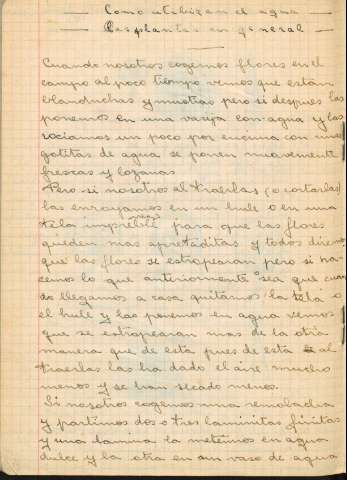 — Como utilizan el agua —
— las plantas en general —
Cuando nosotros cogemos flores en el
campo al poco tiempo vemos que están
blanduchas y mustias pero si después las
ponemos en una vasija con agua y las
rociamos un poco por encima con unas
gotitas de agua se ponen nuevamente
frescas y lozanas
Pero si nosotros al traerlas (o cortarlas)
las enroyamos en un hule o en una
tela para que las flores
queden mas apretaditas y todos diremos
que las flores se estropearan pero si ha-
cemos lo que anteriormente o sea que cuan
do llegamos a casa quitamos la tela o
el hule y las ponemos en agua vemos
que se estropearan mas de la otra
manera que de esta pues de esta al
traerlas las ha dado el aire mucho
menos y se han secado menos.
Si nosotros cogemos una remolacha
y partimos dos o tres laminitas finitas
y una lamina la metemos en agua
dulce y la otra en un vaso de agua